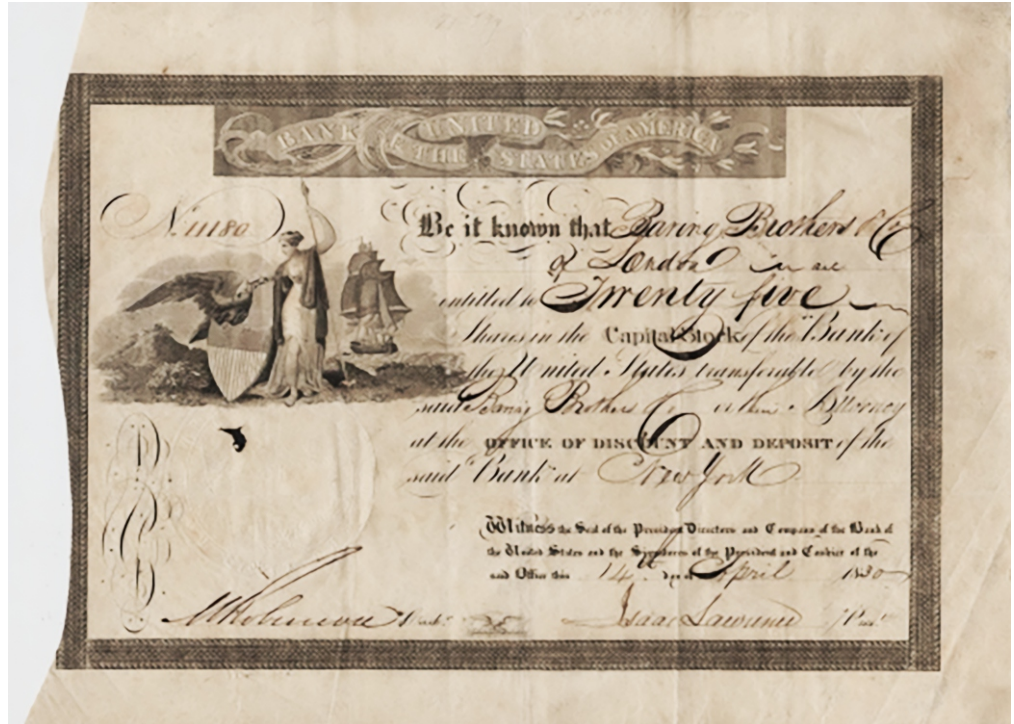 BANK OF THE UNITED STATES OF AMERICA
No. 11180
Be it known that Baring Brothers & Co
of London
entitled to Twenty five
Shares in the Capital Stock of the Bank of
the United States transferable by the
said Baring Brothers & Co or their Attorney
at the OFFICE OF DISCOUNT AND DEPOSIT of the
said Bank at New York
Witness the Seal of the President Directors and Company of the Bank of
the United States and the Signatures of the President and Cashier of the
said Office this 14th day of April 1830
Isaac Lawrence Presdt